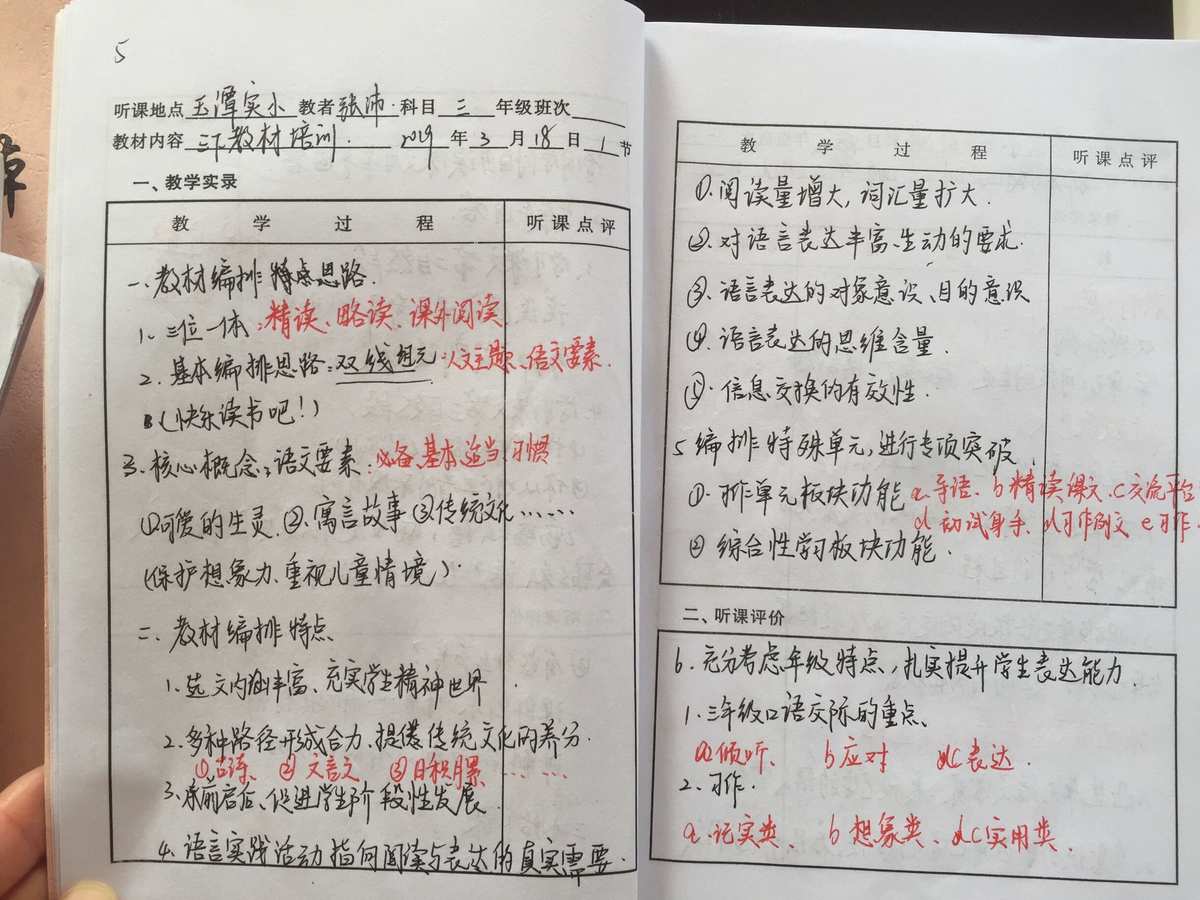 5
听课地点 玉潭实小 教者 张沛 科目 三 年级班次
教材内容 三下教材培训. 2019 年 3 月 18 日 1 节
一、教学实录
教 学 过 程 听课点评
一.教材编排特点思路.
1. 三位一体:精读、略读、课外阅读
2. 基本编排思路:双线组元:人文主题、语文要素.
(快乐读书吧!)
3.核心概念:语文要素:必备 基本 适当 习惯
①可爱的生灵.②.寓言故事 ③传统文化……
(保护想象力、重视儿童情境).
二. 教材编排特点
1.选文内涵丰富、充实学生精神世界.
2.多种路径形成合力、提供传统文化的养分.
①古诗、 ② 文言文 ③日积月累……
3.承前启后、促进学生阶段性发展.
4.语言实践活动指向阅读与表达的真实需要.
教 学 过 程 听课点评
①.阅读量增大,词汇量扩大.
②.对语言表达丰富、生动的要求.
③.语言表达的对象意识、目的意识
④.语言表达的思维含量.
⑤.信息交换的有效性.
5 编排特殊单元,进行专项突破.
①.习作单元板块功能 a.导语、b精读课文、c交流平台
d 初试身手、d习作例文 e习作
② 综合性学习板块功能.
二、听课评价
6.充分考虑年级特点,扎实提升学生表达能力.
1.三年级口语交际的重点、
a倾听、 b应对 c表达.
2.习作.
a.记实类、 b 想象类、c实用类.